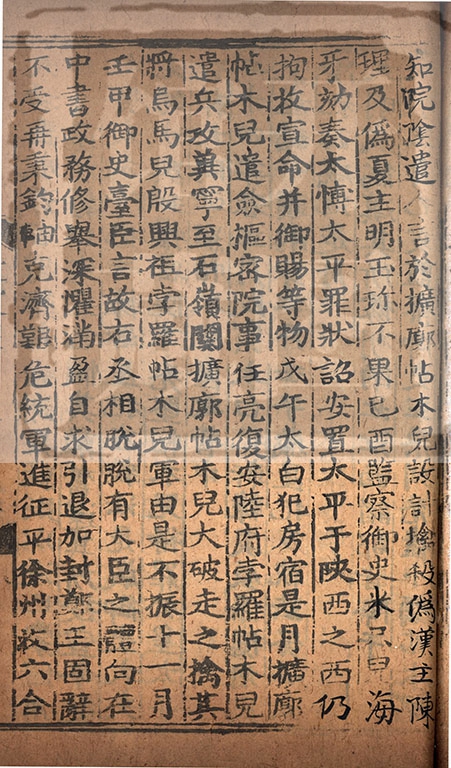 知院陰遣人言於擴廓帖木兒設計擒殺偽漢主陳
理及偽夏主明玉珎不果已酉監察御史米海
牙劾奏太愽太平罪狀詔安置太平于陝西之西仍
拘收宣命并御賜等物戊午太白犯房宿是月擴廓
帖木兒遣僉樞密院事任亮復安陸府孛羅帖木兒
遣兵攻冀寧至石嶺關擴廓帖木兒大破走之擒其
將烏馬兒殷興祖孛羅帖木兒軍由是不振十一月
壬甲御史臺臣言故右丞相脫脫有大臣之體向在
中書政務修舉深懼滿盈自求引退加封鄭王固辭
不受再秉鈞軸克濟艱危統軍進征平徐州收六合